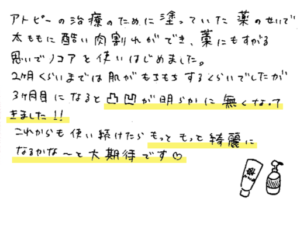 アトピーの治療のために塗っていた薬のせいで
太ももに酷い肉割れができ、藁にもすがる
思いでノコアを使いはじめました。
2ヶ月くらいまでは肌がもちもちするくらいでしたが
3ヶ月目になると凸凹が明らかに無くなって
きました!!
これからも使い続けたらもっともっと綺麗に
なるかな〜と大期待です♡